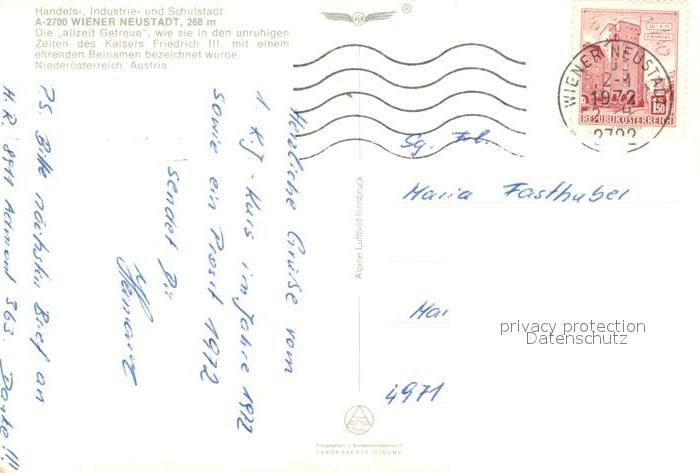 Handels-, Industrie- und Schulstadt
A-2700 WIENER NEUSTADT, 268 m
Die „allzeit Getreue", wie sie in den unruhigen
Zeiten des Kaisers Friedrich III. mit einem
ehrenden Beinamen bezeichnet wurde.
Niederösterreich, Austria
®
WIENER NEUSTADT
1972
2702
WIEN
1.50
REPUBLIK ÖSTERREICH
Herzliche Grüße vom
1 KJ-Kurs im Jahre 1972
sowie ein Prosit 1972
sendet Dir
PS. Bitte nächsten Brief an
H.R. 8911 Admont 363. Danke!!!
Alpine Luftbild Innsbruck
Sg. Frl.
Maria Fasthuber
Mai
4971
privacy protection
Datenschutz
LANDESVERTEIDIGUNG